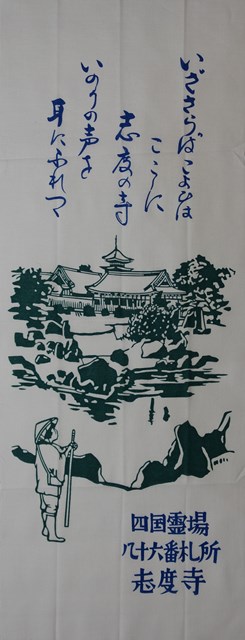 いざさらばこよひは
ここに
志度の寺
いのりの声を
耳にふれつつ
四国霊場
八十六番札所
志度寺